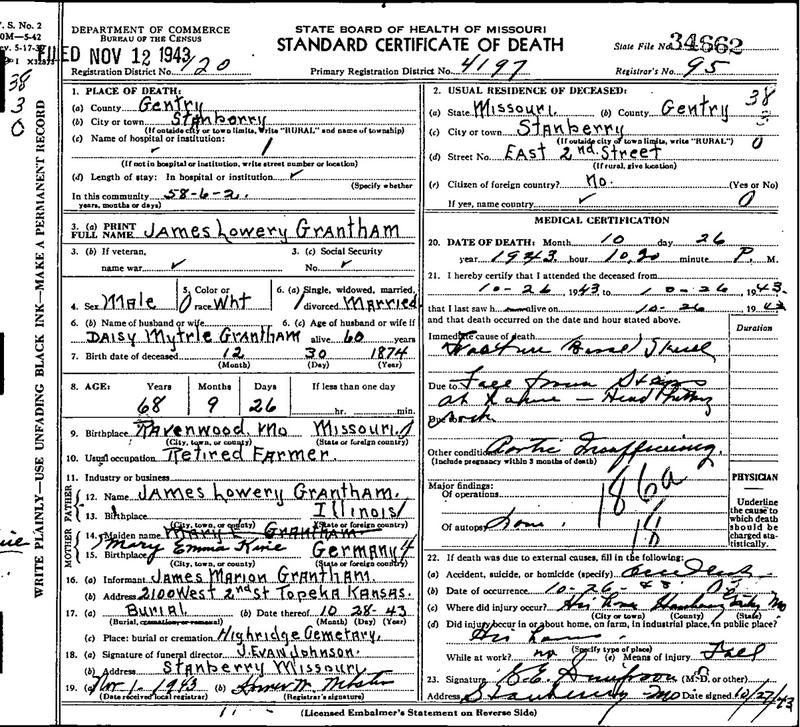 V. S. No. 2
DEPARTMENT OF COMMERCE
BUREAU OF THE CENSUS
FILED NOV 12 1943
STATE BOARD OF HEALTH OF MISSOURI
STANDARD CERTIFICATE OF DEATH
State File No. 34662
Registration District No. 120
Primary Registration District No. 4197
Registrar's No. 95
38
3
0
WRITE PLAINLY—USE UNFADING BLACK INK—MAKE A PERMANENT RECORD
1. PLACE OF DEATH:
(a) County Gentry
(b) City or town Stanberry
(If outside city or town limits, write "RURAL" and name of township)
(c) Name of hospital or institution:
(If not in hospital or institution, write street number or location)
(d) Length of stay: In hospital or institution
(Specify whether
In this community 58-6-2.
years, months or days)
3. (a) PRINT FULL NAME James Lowery Grantham
3. (b) If veteran, name war
3. (c) Social Security No.
4. Sex Male
5. Color or race Wht
6. (a) Single, widowed, married, divorced Married
6. (b) Name of husband or wife Daisy Myrtle Grantham
6. (c) Age of husband or wife if alive 60 years
7. Birth date of deceased 12 30 1874
(Month) (Day) (Year)
8. AGE: Years Months Days If less than one day
68 9 26 hr. min.
9. Birthplace Ravenwood, Mo Missouri
(City, town, or county) (State or foreign country)
10. Usual occupation Retired Farmer
11. Industry or business
FATHER
12. Name James Lowery Grantham.
13. Birthplace Illinois
(City, town, or county) (State or foreign country)
MOTHER
14. Maiden name Mary E Grantham
Mary Emma
15. Birthplace Germany 4
(City, town, or county) (State or foreign country)
16. (a) Informant James Marion Grantham.
(b) Address 2100 West 2nd St Topeka Kansas.
17. (a) Burial (b) Date thereof 10 28-43
(Burial, cremation, or removal) (Month) (Day) (Year)
(c) Place: burial or cremation Highridge Cemetary,
18. (a) Signature of funeral director J. Evan Johnson.
(b) Address Stanberry Missouri
19. (a) Nov 1-1943 (b)
(Date received local registrar) (Registrar's signature)
2. USUAL RESIDENCE OF DECEASED:
(a) State Missouri. (b) County Gentry 38
(c) City or town Stanberry
(If outside city or town limits, write "RURAL") 0
(d) Street No. East 2nd. Street
(If rural, give location)
(e) Citizen of foreign country? No. (Yes or No)
If yes, name country 0
MEDICAL CERTIFICATION
20. DATE OF DEATH: Month 10 day 26
year 1943 hour 10:20 minute P. M.
21. I hereby certify that I attended the deceased from
10-26 1943 to 10-26, 1943.
that I last saw h alive on 10-26 1943
and that death occurred on the date and hour stated above.
Duration
Immediate cause of death
Basal Skull
Due to Fall from Steps
at home — Head
Due to
Other conditions Aortic Insufficiency
(Include pregnancy within 3 months of death)
Major findings:
Of operations
186a
18
Of autopsy
PHYSICIAN
Underline the cause to which death should be charged statistically.
22. If death was due to external causes, fill in the following:
(a) Accident, suicide, or homicide (specify) Accident
(b) Date of occurrence 10-26 43
(c) Where did injury occur? His home Stanberry Gentry Mo
(City or town) (County) (State)
(d) Did injury occur in or about home, on farm, in industrial place, in public place?
His home
(Specify type of place)
While at work? no (e) Means of injury Fall
23. Signature (M. D. or other)
Address Stanberry Mo Date signed 10/27/43
(Licensed Embalmer's Statement on Reverse Side)